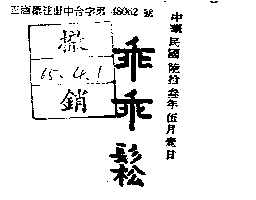 正商標註冊中台字第 48062 號
中華民國陸拾叁年伍月壹日
乖乖鬆
撤
15.4.1
銷